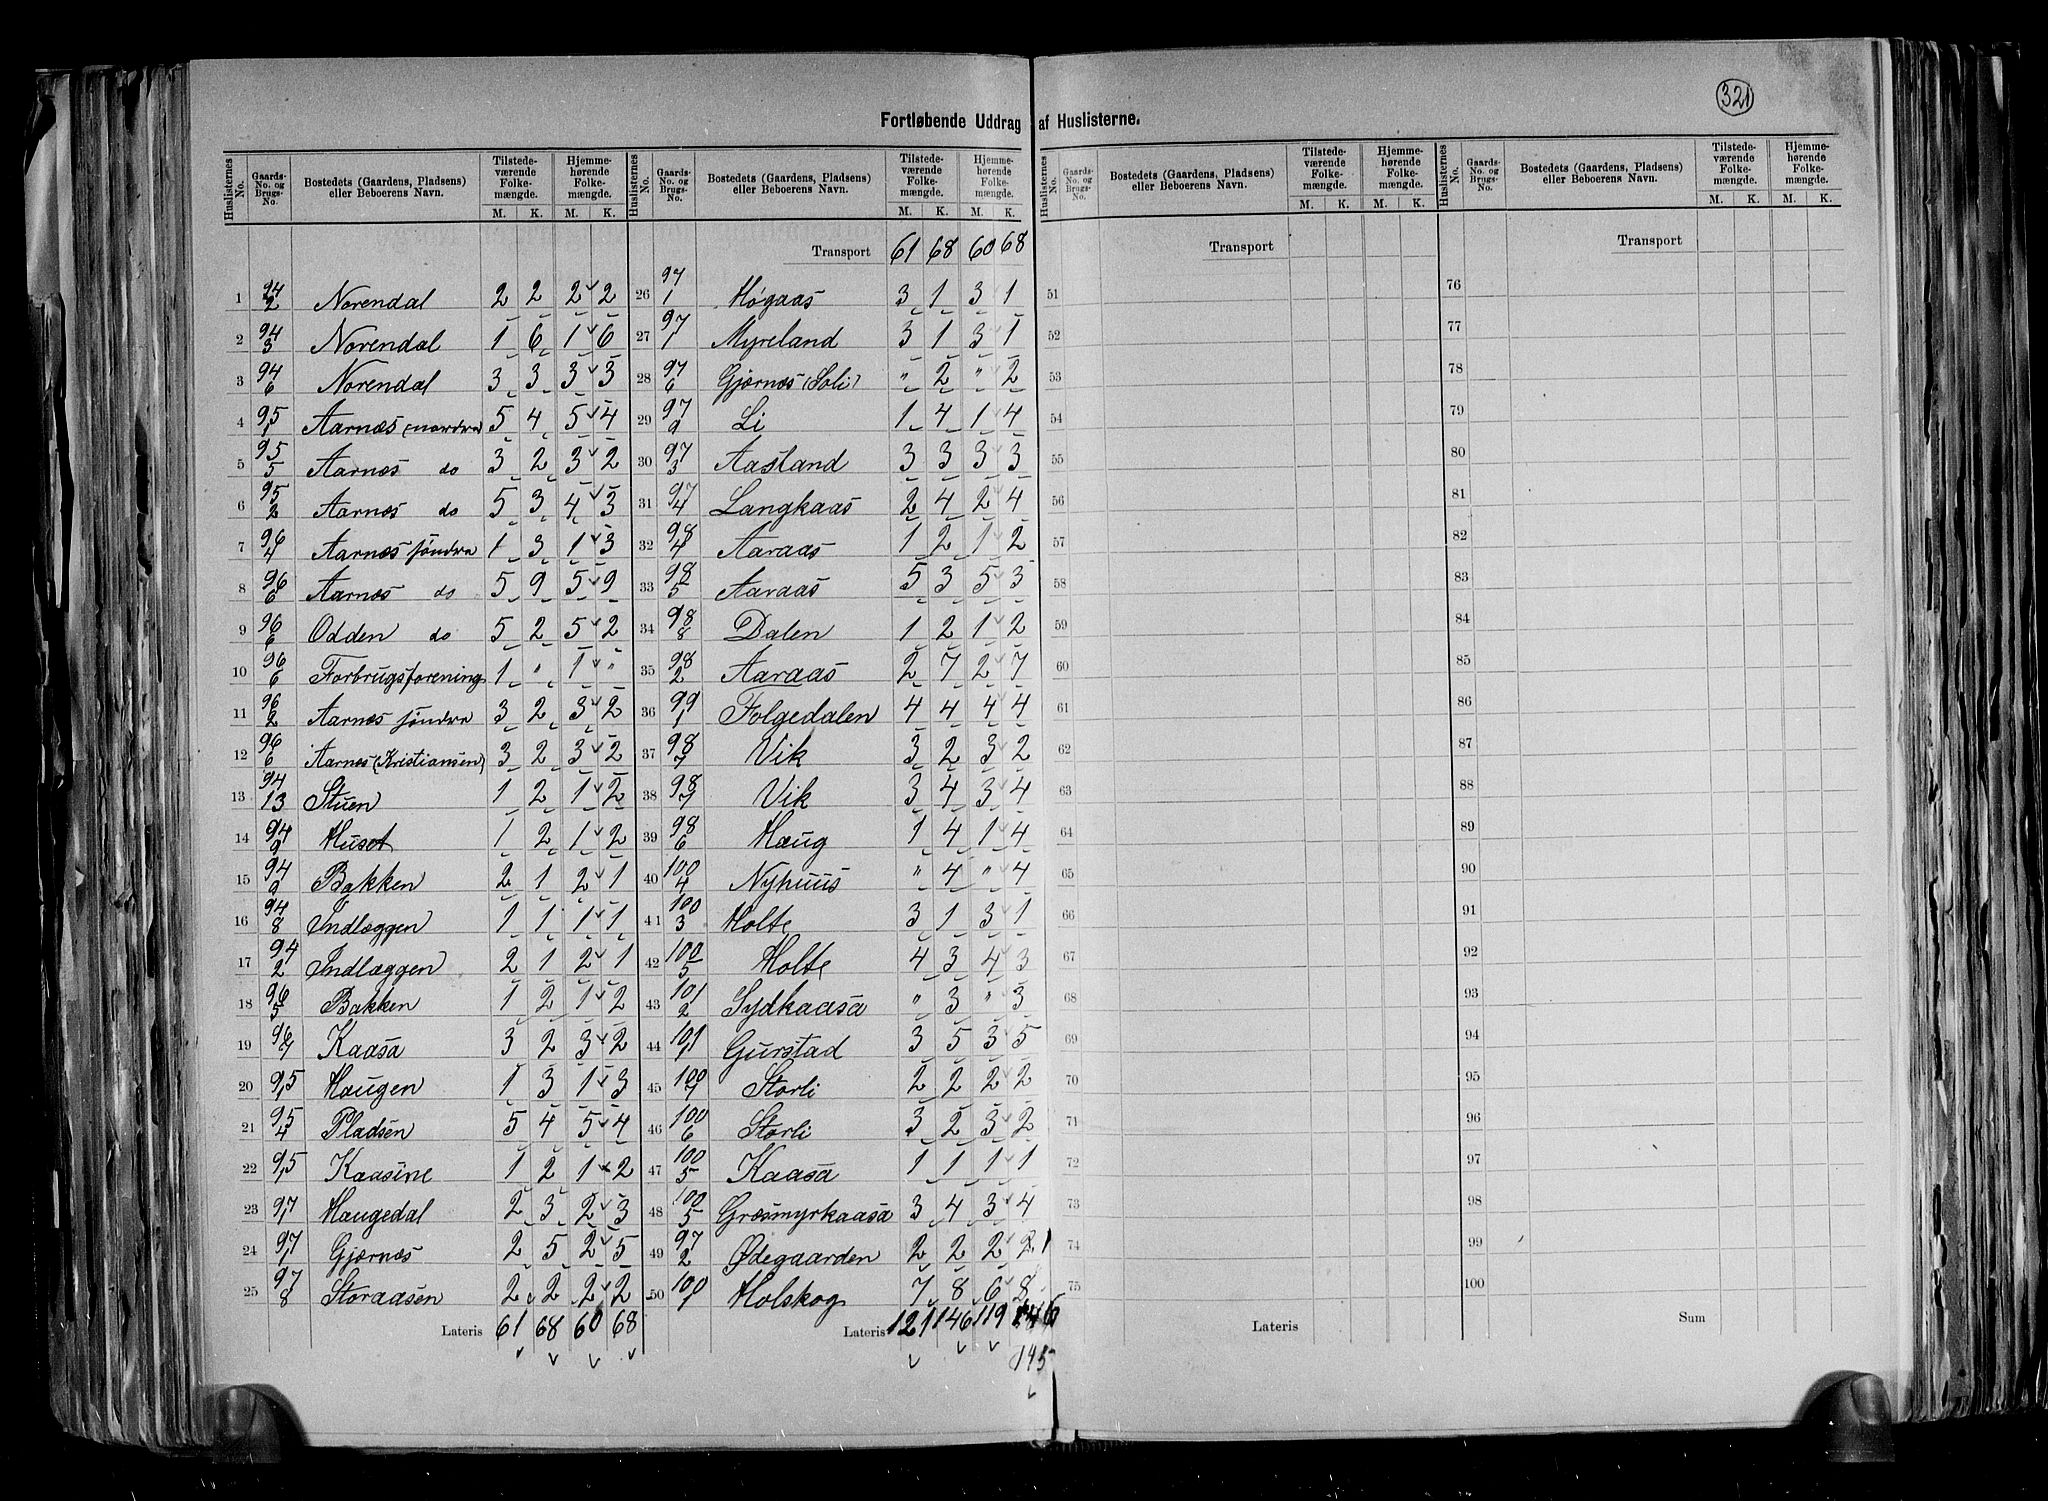 321
Fortløbende Uddrag af Huslisterne.
Huslisternes No. | Gaards-No. og Brugs-No. | Bostedets (Gaardens, Pladsens) eller Beboerens Navn. | Tilstedeværende Folkemængde. M. K. | Hjemmehørende Folkemængde. M. K.
1 94/2 Norendal 2 2 2 2
2 94/3 Norendal 1 6 1 6
3 94/6 Norendal 3 3 3 3
4 95/1 Aarnæs (nordra) 5 4 5 4
5 95/5 Aarnæs do 3 2 3 2
6 95/2 Aarnæs do 5 3 4 3
7 96/4 Aarnæs søndra 1 3 1 3
8 96/6 Aarnæs do 5 9 5 9
9 96/6 Odden do 5 2 5 2
10 96/6 Forbrugsforening 1 " 1 "
11 96/2 Aarnæs søndra 3 2 3 2
12 96/6 Aarnæs (Kristiansen) 3 2 3 2
13 94/13 Stuen 1 2 1 2
14 94/9 Huset 1 2 1 2
15 94/9 Bakken 2 1 2 1
16 94/8 Indlæggen 1 1 1 1
17 94/2 Indlæggen 2 1 2 1
18 96/5 Bakken 1 2 1 2
19 96/7 Kaasa 3 2 3 2
20 95/1 Haugen 1 3 1 3
21 95/4 Pladsen 5 4 5 4
22 95/1 Kaasine 1 2 1 2
23 97/1 Haugedal 2 3 2 3
24 97/1 Gjærnæs 2 5 2 5
25 97/8 Storaasen 2 2 2 2
Lateris 61 68 60 68
Huslisternes No. | Gaards-No. og Brugs-No. | Bostedets (Gaardens, Pladsens) eller Beboerens Navn. | Tilstedeværende Folkemængde. M. K. | Hjemmehørende Folkemængde. M. K.
Transport 61 68 60 68
26 97/1 Høgaas 3 1 3 1
27 97/1 Myreland 3 1 3 1
28 97/6 Gjærnæs (Soli) " 2 " 2
29 97/9 Li 1 4 1 4
30 97/3 Aasland 3 3 3 3
31 97/4 Langkaas 2 4 2 4
32 98/4 Aaraas 1 2 1 2
33 98/5 Aaraas 5 3 5 3
34 98/8 Dalen 1 2 1 2
35 98/2 Aaraas 2 7 2 7
36 99/1 Folgedalen 4 4 4 4
37 98/7 Vik 3 2 3 2
38 98/7 Vik 3 4 3 4
39 98/6 Haug 1 4 1 4
40 100/4 Nyhuus " 4 " 4
41 100/3 Holte 3 1 3 1
42 100/5 Holte 4 3 4 3
43 101/2 Sydkaasa " 3 " 3
44 101/1 Gurstad 3 5 3 5
45 100/7 Storli 2 2 2 2
46 100/6 Storli 3 2 3 2
47 100/5 Kaasa 1 1 1 1
48 100/5 Græsmyrkaasa 3 4 3 4
49 97/2 Ødegaarden 2 2 2 2 1
50 100/1 Holskog 7 8 6 8
Lateris 121 146 119 146
145
Huslisternes No. | Gaards-No. og Brugs-No. | Bostedets (Gaardens, Pladsens) eller Beboerens Navn. | Tilstedeværende Folkemængde. M. K. | Hjemmehørende Folkemængde. M. K.
Transport
51
52
53
54
55
56
57
58
59
60
61
62
63
64
65
66
67
68
69
70
71
72
73
74
75
Lateris
Huslisternes No. | Gaards-No. og Brugs-No. | Bostedets (Gaardens, Pladsens) eller Beboerens Navn. | Tilstedeværende Folkemængde. M. K. | Hjemmehørende Folkemængde. M. K.
Transport
76
77
78
79
80
81
82
83
84
85
86
87
88
89
90
91
92
93
94
95
96
97
98
99
100
Sum